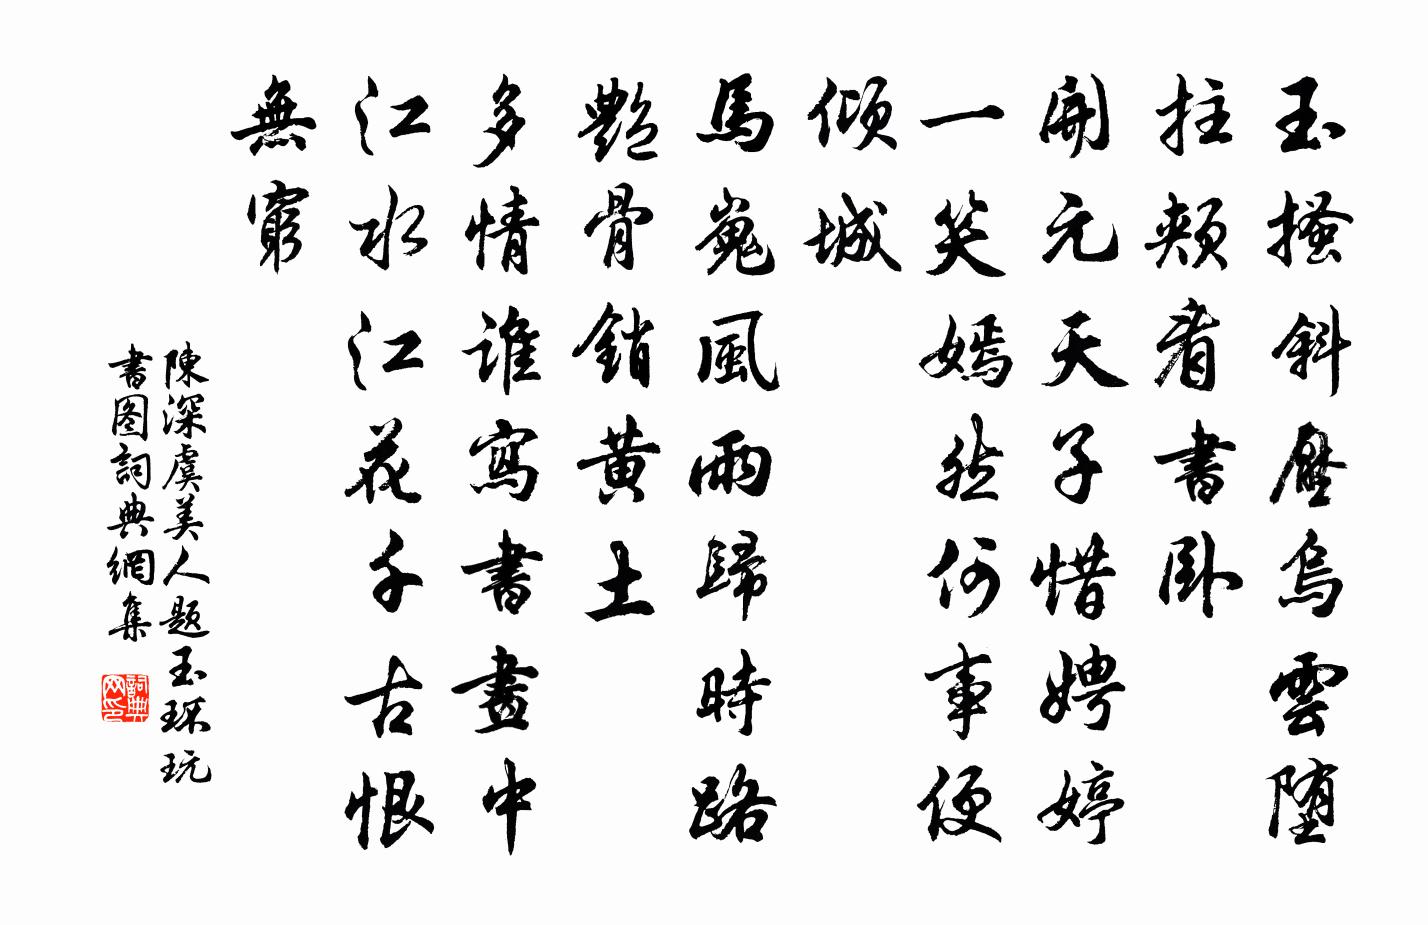 玉搔斜壓烏雲墮
拄頰看書臥
開元天子惜娉婷
一笑嫣然何事便
傾城
馬嵬風雨歸時路
艷骨銷黃土
多情誰寫書畫中
江水江花千古恨
無窮
陳深虞美人題玉環玩
書图詞典網集
詞典网印